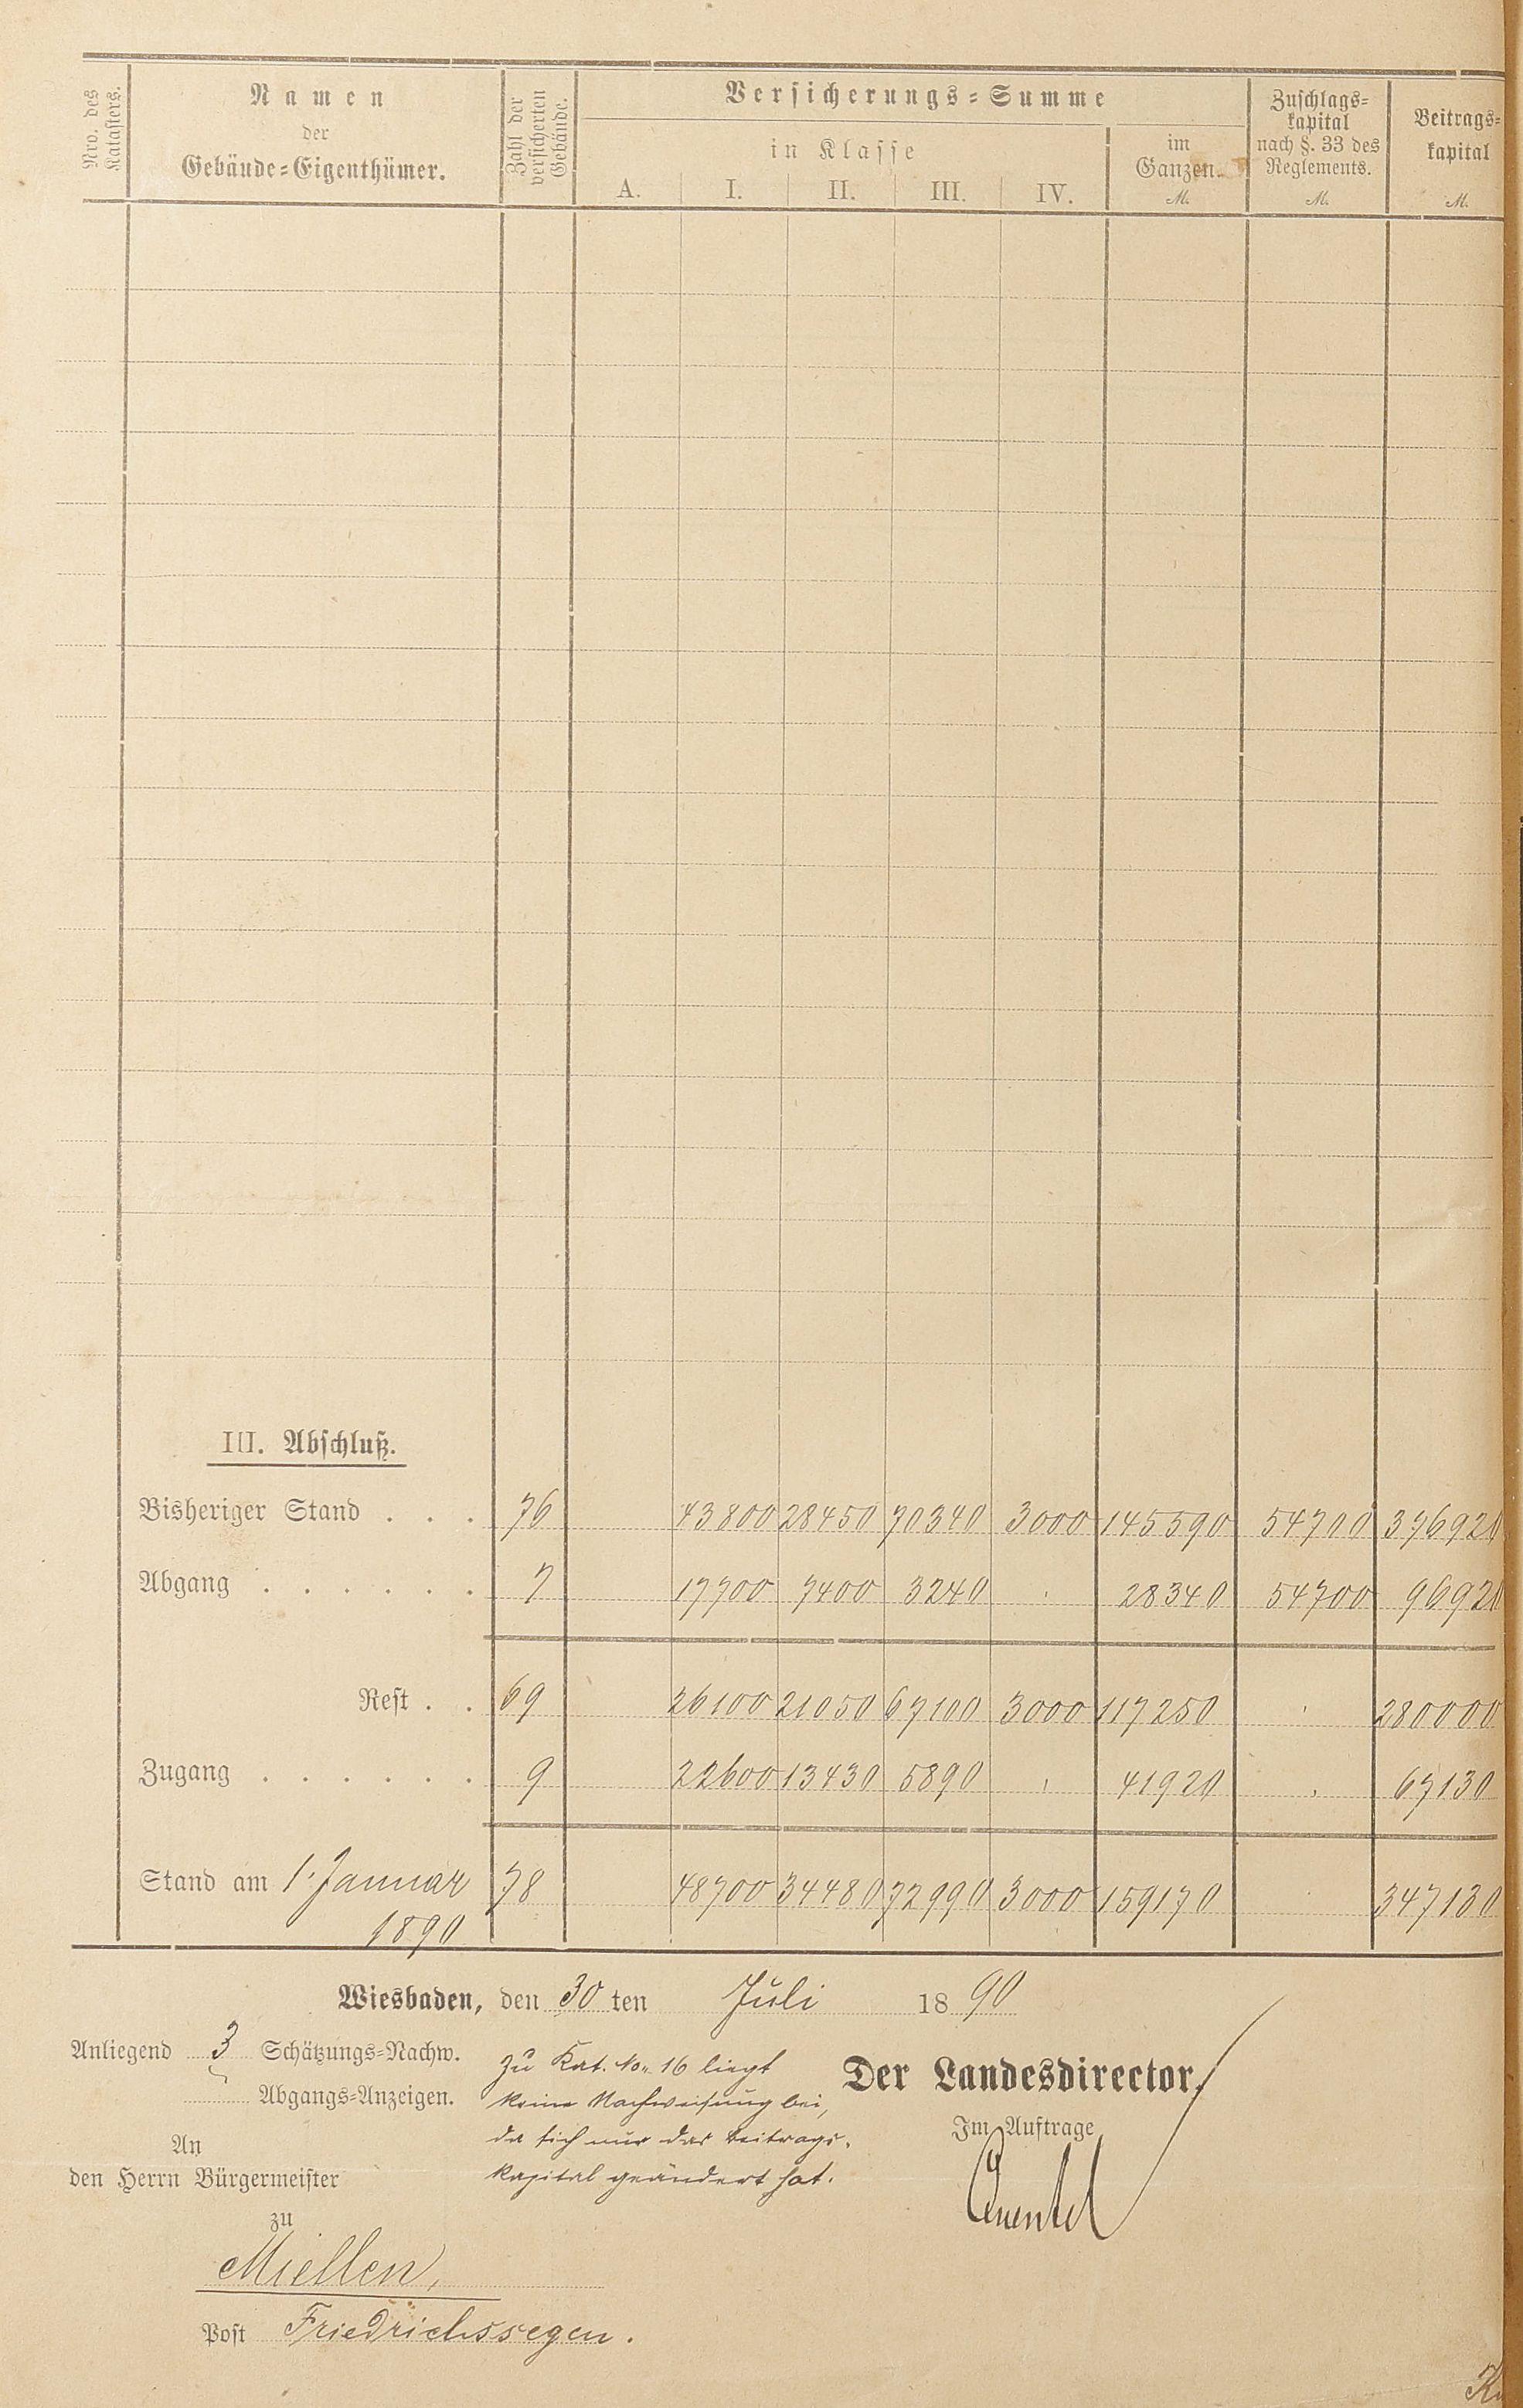 Nro. des
Katasters.
Namen
der
Gebäude=Eigenthümer.
Zahl der
versicherten
Gebäude.
Versicherungs=Summe
in Klasse
A. I. II. III. IV.
im
Ganzen.
M.
Zuschlags=
kapital
nach §. 33 des
Reglements.
M.
Beitrags=
kapital
M.
III. Abschluß.
Bisheriger Stand . . . 76 43800 28450 70340 3000 145590 54700 376920
Abgang . . . . . . 7 17700 7400 3240 . 28340 54700 96920
Rest . . 69 26100 21050 67100 3000 117250 . 280000
Zugang . . . . . . 9 22600 13430 5890 . 41920 . 67130
Stand am 1. Januar 78 48700 34480 72990 3000 159170 347130
1890
Wiesbaden, den 30 ten Juli 1890
Anliegend 3 Schätzungs=Nachw.
Abgangs=Anzeigen.
An
den Herrn Bürgermeister
zu
Miellen,
Post Friedrichssegen.
Zu Kat. No. 16 liegt
keine Nachweisung bei,
da sich nur das Beitrags-
kapital geändert hat.
Der Landesdirector,
Im Auftrage